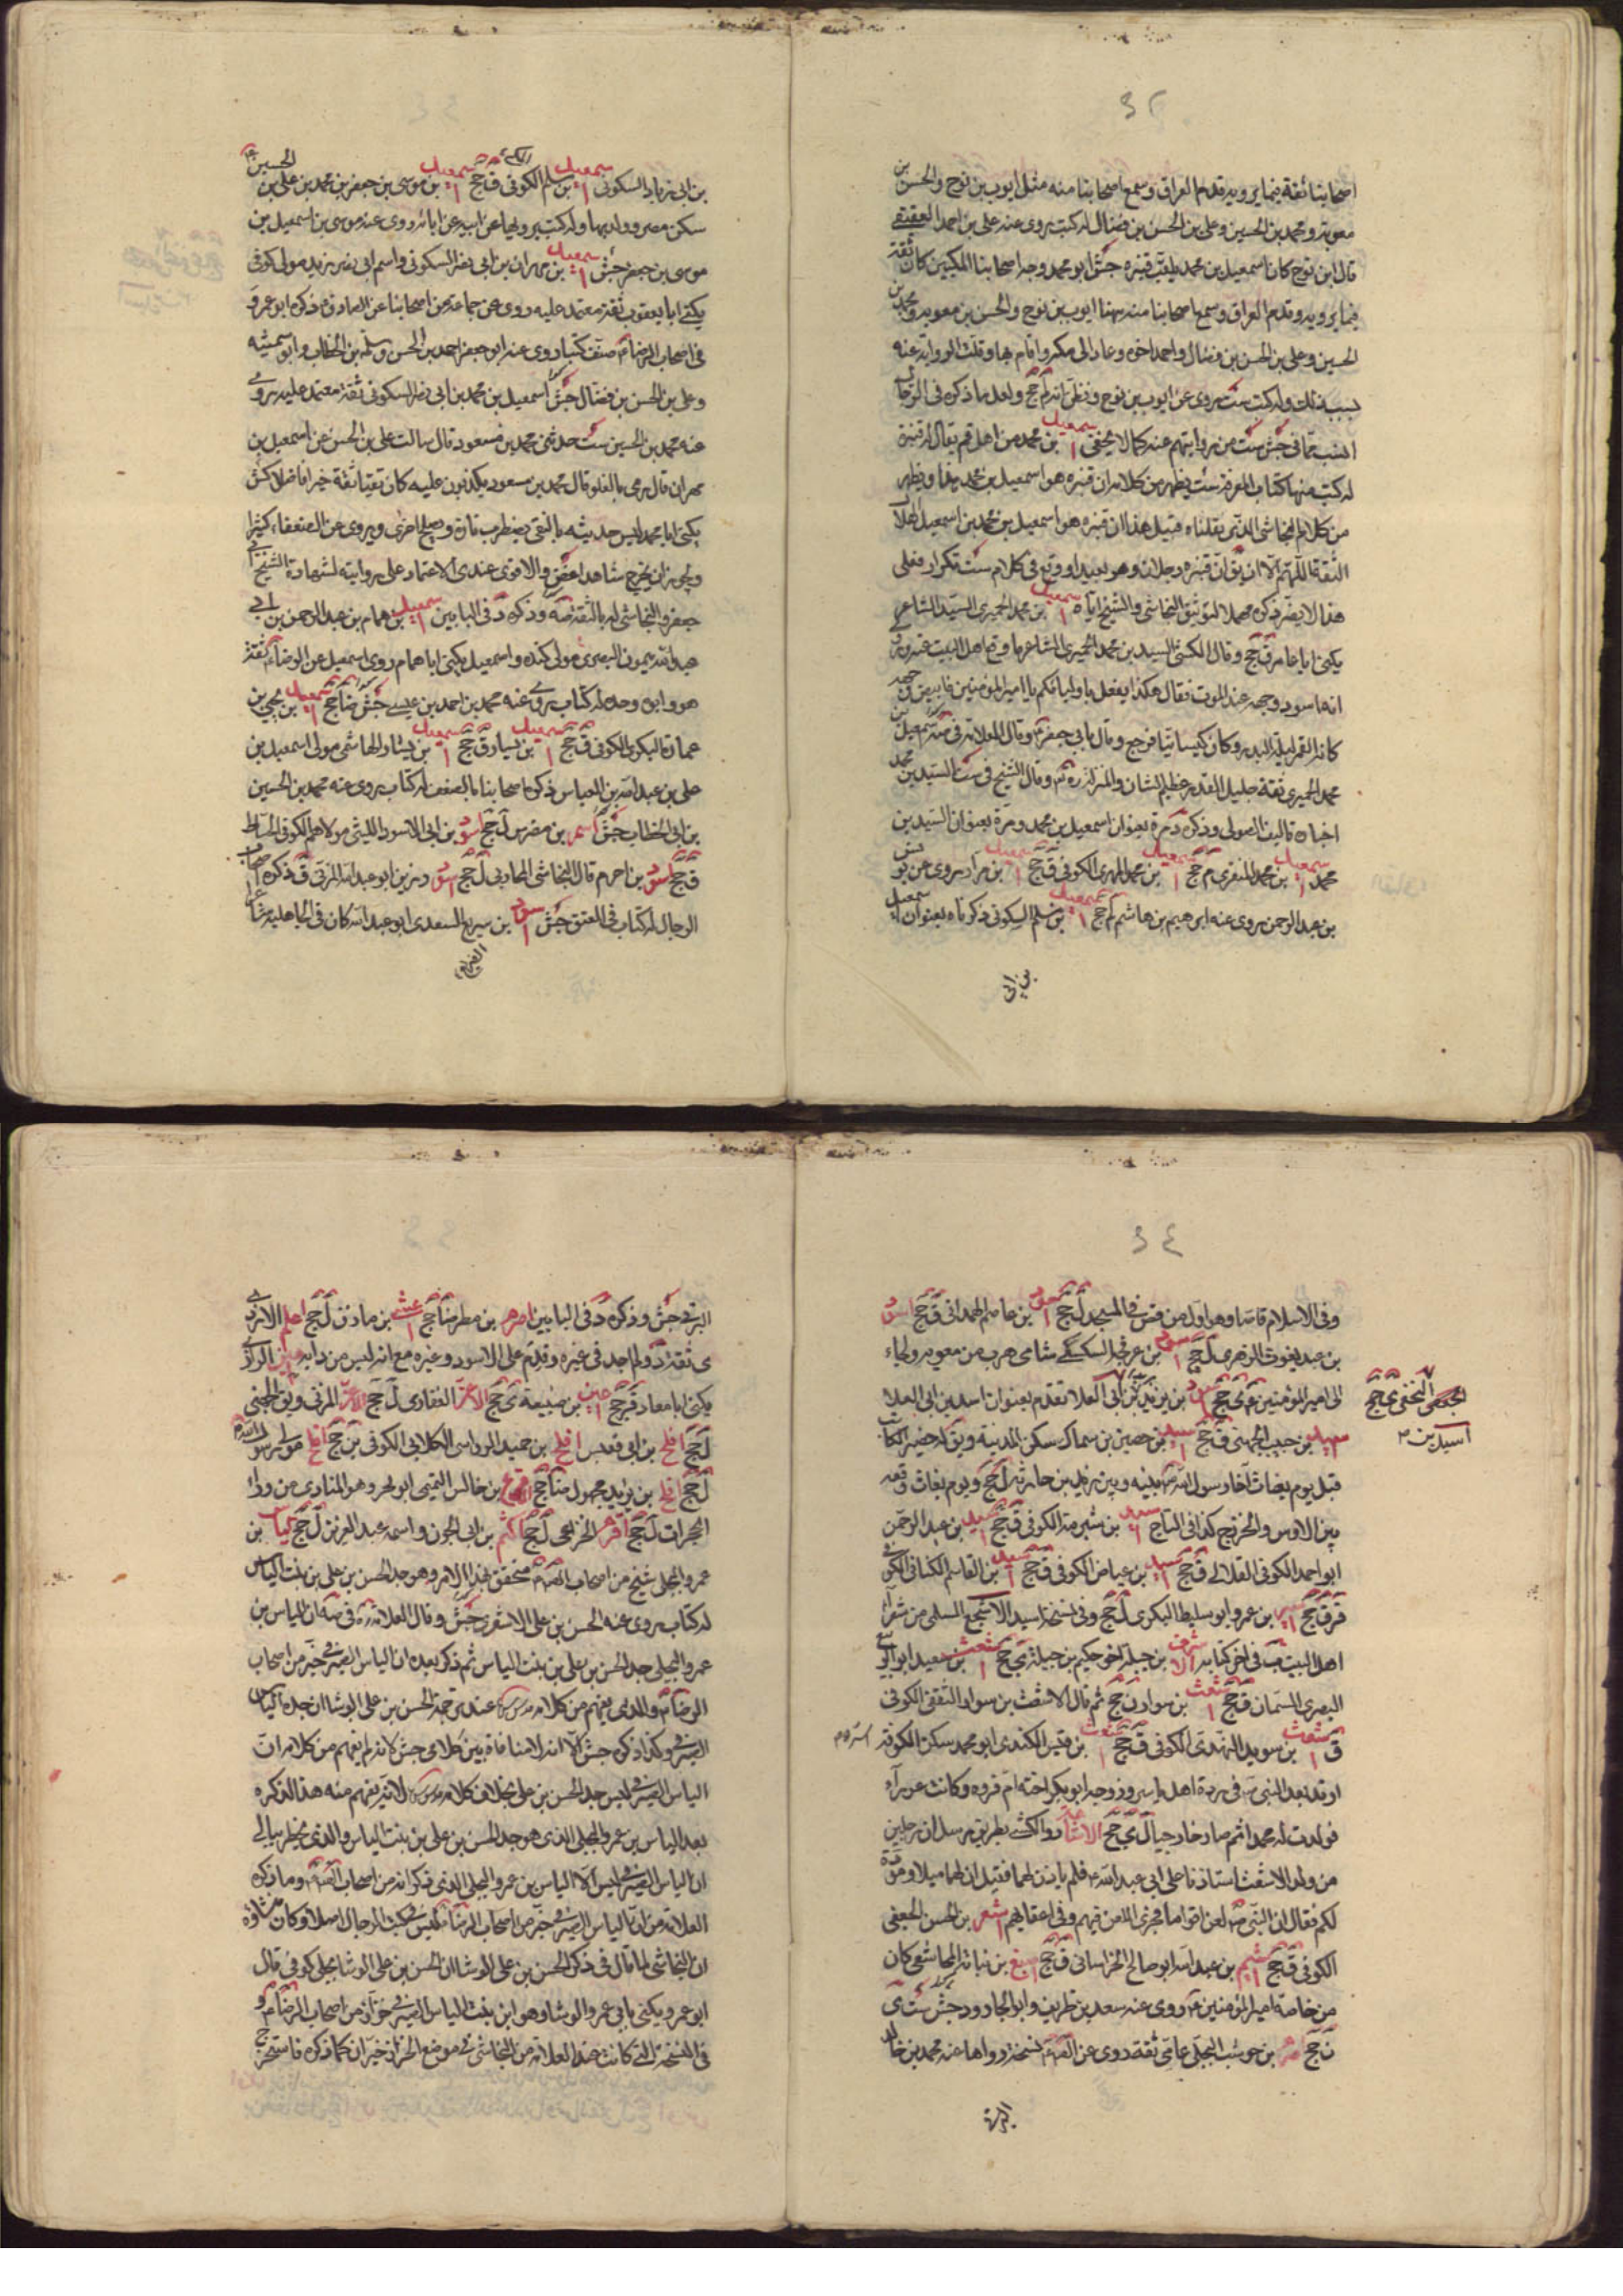 ٣٢
اصحابنا ثقة فيما يرويه قدم العراق وسمع اصحابنا منه مثل ايوب بن نوح والحسن بن
معوية ومحمد بن الحسين وعلي بن الحسن بن فضال له كتب روى عنه علي بن احمد العقيقي
قال ابن نوح كان اسمعيل بن محمد يلقب قنبره جش ابو محمد وجه اصحابنا المكيين كان ثقة
فيما يرويه وقدم العراق وسمع اصحابنا منه منهما ايوب بن نوح والحسن بن معوية ومحمد بن
الحسين وعلي بن الحسن بن فضال واحمد اخوه وعاد الى مكة واقام بها وقلت الرواية عنه
بسبب ذلك وله كتب ست روى عن ايوب بن نوح ولعل ما ذكره في الرجال
انسب مما في جش ست من روايتهم عنه كما لا يخفى اسمعيل بن محمد من اهل قم يقال له قنبرة
له كتب منها كتاب المعرفة ست يظهر من كلامه ان قنبره هو اسمعيل بن محمد هذا ويظهر
من كلام النجاشي الذي نقلناه قبيل هذا ان قنبره هو اسمعيل بن محمد بن اسمعيل الهلالي
الثقة اللهم الا ان يق ان قنبره رجلان وهو بعيد او وقع في كلام ست تكرار فعلى
هذا لا يضر ذكره مهملا لتوثيق النجاشي والشيخ اياه اسمعيل بن محمد الحميري السيد الشاعر
يكنى ابا عامر ق جخ وقال الكشي السيد بن محمد الحميري الشاعر
انه اسود وجهه عند الموت فقال هكذا يفعل باوليائكم يا امير المؤمنين فابيض وجهه
كانه القمر ليلة البدر وكان كيسانيا فرجع وقال العلامة في اسمعيل بن
محمد الحميري ثقة جليل القدر عظيم الشان والمنزلة وقال الشيخ في ست السيد بن محمد
اخباره تاليف الصولي وذكره د مرة بعنوان اسمعيل بن محمد ومرة بعنوان السيد بن
محمد اسمعيل بن محمد المنقري م جخ اسمعيل بن محمد المهري الكوفي ق جخ اسمعيل بن مرار روى عن يونس
بن عبد الرحمن روى عنه ابرهيم بن هاشم لم جخ اسمعيل بن مسلم السكوني ذكرناه بعنوان اسمعيل
بن ابي
بن ابي زياد السكوني اسمعيل بن مسلم الكوفي ق جخ اسمعيل بن موسى بن جعفر بن محمد بن علي بن الحسين
سكن مصر وولده بها وله كتب يرويها عن ابيه عن ابائه روى عنه موسى بن اسمعيل بن
موسى بن جعفر جش اسمعيل بن مهران بن ابي نصر السكوني واسم ابي نصر زيد مولى كوفي
يكنى ابا يعقوب ثقة معتمد عليه روى عن جماعة من اصحابنا عن الصادق ذكره ابو عمرو
في اصحاب الرضا صنف كتبا روى عنه ابو جعفر احمد بن الحسن وسلمة بن الخطاب وابو سمينه
وعلي بن الحسن بن فضال جش اسمعيل بن محمد بن ابي نصر السكوني ثقة معتمد عليه روى
عنه محمد بن الحسين ست حدثني محمد بن مسعود قال سالت علي بن الحسن عن اسمعيل بن
مهران قال رمي بالغلو قال محمد بن مسعود يكذبون عليه كان تقيا ثقة خيرا فاضلا كش
يكنى ابا محمد ليس حديثه بالنقي يضطرب تارة ويصلح اخرى ويروي عن الضعفاء كثيرا
ويجوز ان يخرج شاهدا غض والاقوى عندي الاعتماد على روايته لشهادة الشيخ ابي
جعفر والنجاشي له بالثقة صه وذكره د في البابين اسمعيل بن همام بن عبد الرحمن بن ابي
عبد الله ميمون البصري مولى كنده واسمعيل يكنى ابا همام روى اسمعيل عن الرضا ثقة
هو وابوه وجده له كتاب روى عنه محمد بن احمد بن عيسى جش ضا جخ اسمعيل بن يحيى بن
عمارة البكري الكوفي ق جخ اسمعيل بن يسار ق جخ اسمعيل بن يسار الهاشمي مولى اسمعيل بن
علي بن عبد الله بن العباس ذكره اصحابنا بالضعف له كتاب روى عنه محمد بن الحسين
بن ابي الخطاب جش اسمر بن مضرس ل جخ اسود بن ابي الاسود الليثي مولاهم الكوفي الحناط
ق جخ اسود بن اصرم قال النجاشي المحاربي ل جخ اسود بن رزين ابو عبد الله المزني ق ذكره اصحاب
الرجال له كتاب في العتق جش اسود بن سريع السعدي ابو عبد الله كان في الجاهلية شاعرا
٣٤
وفي الاسلام قاصا وهو اول من قص في المسجد ل جخ اسود بن عاصم الهمداني ق جخ اسود
بن عبد يغوث الزهري ل جخ اسود بن عرفجة السكسكي شامي هرب من معوية ولجاء
الى امير المؤمنين ي جخ اسود بن يزيد بن ابي العلا تقدم بعنوان اسد بن ابي العلا
النخعي ي جخ
اسيد بن
اسيد بن حبيب الجهني ق جخ اسيد بن حضير بن سماك سكن المدينة ويق له حضير الكتائب
قتل يوم بغاث اخا رسول الله بينه وبين زيد بن حارثة ل جخ ويوم بغاث وقعة
بين الاوس والخزرج كذا في التاج اسيد بن شبرمة الكوفي ق جخ اسيد بن عبد الرحمن
ابو احمد الكوفي ق جخ اسيد بن عياض الكوفي ق جخ اسيد بن القاسم الكناني الكوفي
قر ق جخ اسير بن عمرو ابو سليط البكري ل جخ وفي نسخة اسيد الاشجع السلمي من شعراء
اهل البيت ب في اخر كتابه الاشرف بن جبلة اخو حكيم بن جبلة ي جخ اشعث بن سعيد ابو الربيع
البصري السمان ق جخ اشعث بن سوار ن جخ ثم قال الاشعث بن سوار الثقفي الكوفي
ق اشعث بن سويد النهدي الكوفي ق جخ اشعث بن قيس الكندي ابو محمد سكن الكوفة
ارتد بعد النبي في ردة اهل ياسر وزوجه ابو بكر اخته ام فروه وكانت عوراء
فولدت له محمدا ثم صار خارجيا ل ي جخ الاشاعثة روى الكشي بطريق مرسل ان رجلين
من ولد الاشعث استاذنا على ابي عبد الله فلم ياذن لهما فقيل ان لهما ميلا ومودة
لكم فقال ان النبي لعن اقواما فجرى اللعن فيهم وفي اعقابهم اشعر بن الحسن الجعفي
الكوفي ق جخ اشيم بن عبد الله ابو صالح الخراساني ق جخ اصبغ بن نباتة المجاشعي كان
من خاصة امير المؤمنين روى عنه سعد بن طريف وابو الجارود جش ست ي
ن جخ اصرم بن حوشب البجلي عامي ثقة روى عن الصادق نسخة رواها عنه محمد بن خالد
البرقي جش وذكره د في البابين اصرم بن مطر ضا جخ اعشى بن مازن ل جخ اعلم الازدي
ي ثقة د ولم اجد في غيره وقدم على الاسود وغيره مع انه ليس من دابه اعين الرازي
يكنى ابا معاذ قر جخ اعين بن ضبيعة ي جخ الاغر الغفاري ل جخ الاغر المزني ويق الجهني
ل جخ افلح بن ابي قعيس افلح بن حميد الرواسي الكلابي الكوفي ين جخ افلح مولى رسول الله
ل جخ افلح بن يزيد مجهول ضا جخ اقرع بن حابس التميمي ابو بحر وهو المنادي من وراء
الحجرات ل جخ اقرم الخزاعي ل جخ اكثم بن ابي الجون واسمه عبد العزى ل جخ الياس بن
عمرو البجلي شيخ من اصحاب الصادق متحقق بهذا الامر وهو جد الحسن بن علي بن بنت الياس
له كتاب روى عنه الحسن بن علي الاشعري جش وقال العلامة في صه ان الياس بن
عمرو البجلي جد الحسن بن علي بن بنت الياس ثم ذكر بعده ان الياس الصيرفي خير من اصحاب
الرضا والذي يفهم من كلامه عند ترجمة الحسن بن علي الوشا ان جده الياس
الصيرفي وكذا ذكره جش الا انه لا منافاة بين كلامي جش لانه لم يفهم من كلامه ان
الياس الصيرفي ليس جد الحسن بن علي بخلاف كلام لانه يفهم منه هذا لذكره
بعد الياس بن عمرو البجلي الذي هو جد الحسن بن علي بن بنت الياس والذي يخطر ببالي
ان الياس الصيرفي ليس الا الياس بن عمرو البجلي الذي ذكر انه من اصحاب الصادق وما ذكره
العلامة من ان الياس الصيرفي خير من اصحاب الرضا ليس في كتب الرجال اصلا وكان منشاؤه
ان النجاشي لما قال في ذكر الحسن بن علي الوشا ان الحسن بن علي الوشا بجلي كوفي قال
ابو عمرو ويكنى بابي محمد الوشا وهو ابن بنت الياس الصيرفي خزاز من اصحاب الرضا و
في النسخة التي كانت عند العلامة من النجاشي في موضع الخزاز خيران كما ذكره فاستخرج